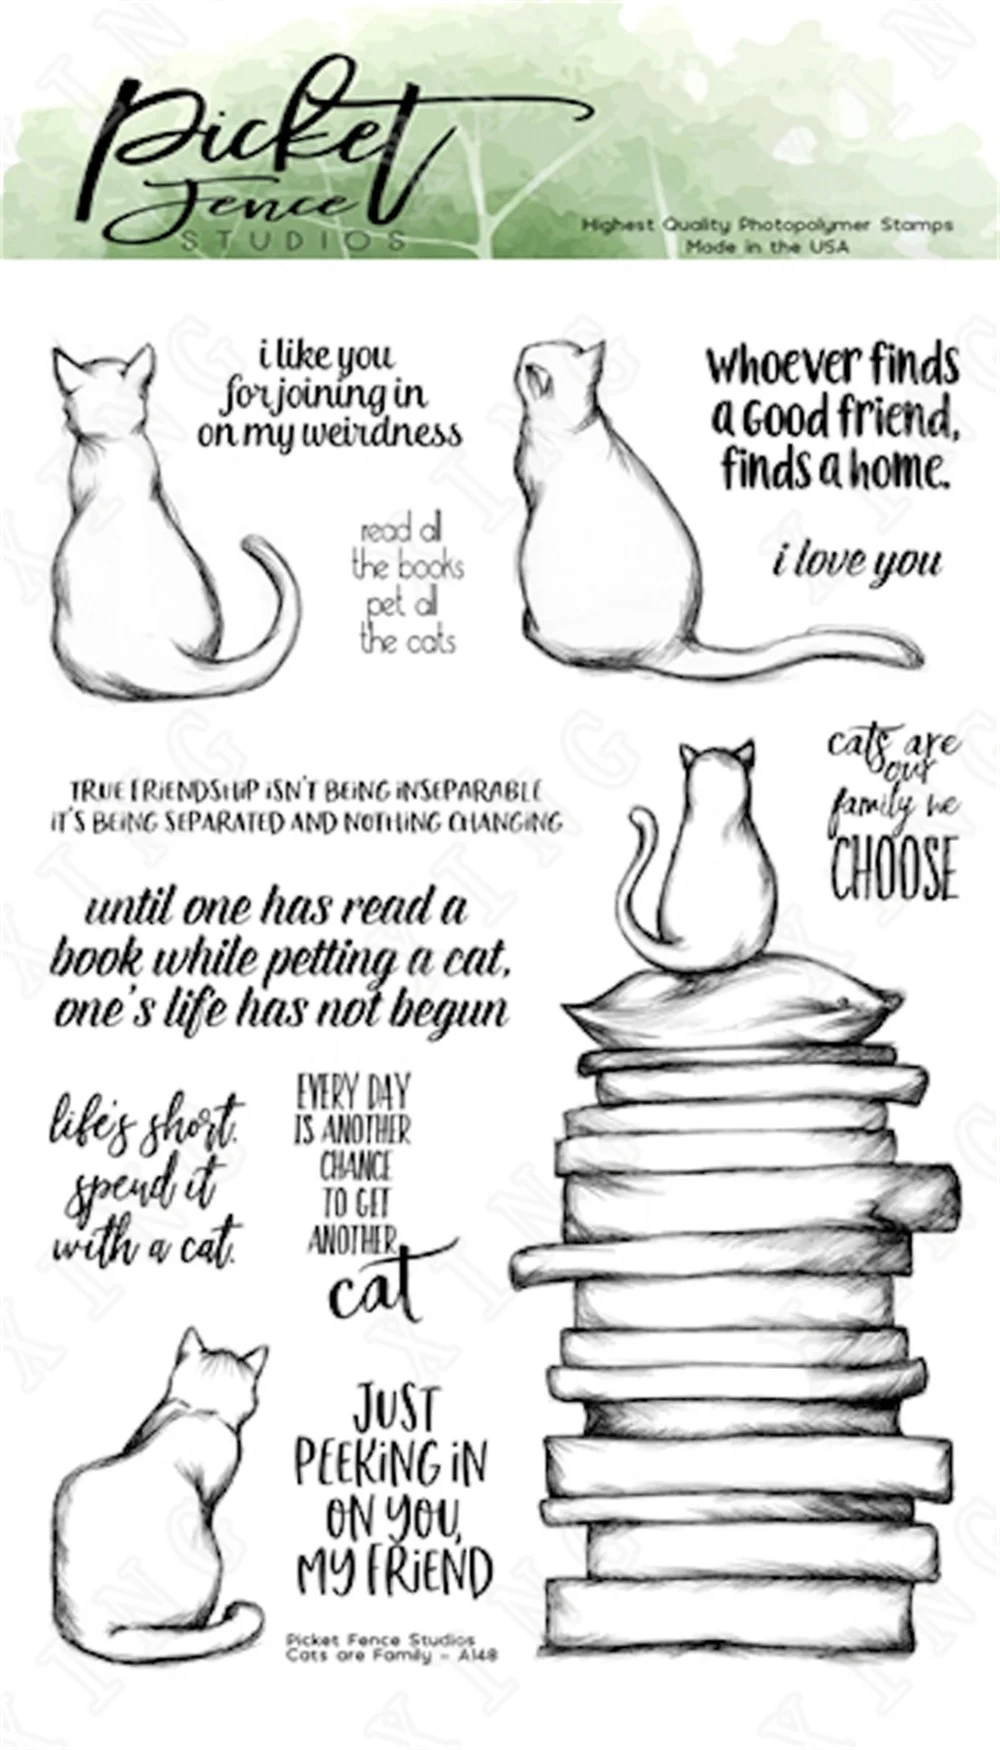 Picket
Fence
STUDIOS
Highest Quality Photopolymer Stamps
Made in the USA
i like you
for joining in
on my weirdness
whoever finds
a Good friend,
finds a home.
read all
the books
pet all
the cats
i love you
cats are
our
family we
CHOOSE
TRUE FRiENDSHiP iSN'T BEiNG iNSEPARABLE
iT'S BEiNG SEPARATED AND NOTHiNG CHANGiNG
until one has read a
book while petting a cat,
one's life has not begun
life's short.
spend it
with a cat.
EVERY DAY
IS ANOTHER
CHANCE
TO GET
ANOTHER
cat
JUST
PEEKiNG iN
ON YOU,
MY FRiEND
Picket Fence Studios
Cats are Family - A148
XING